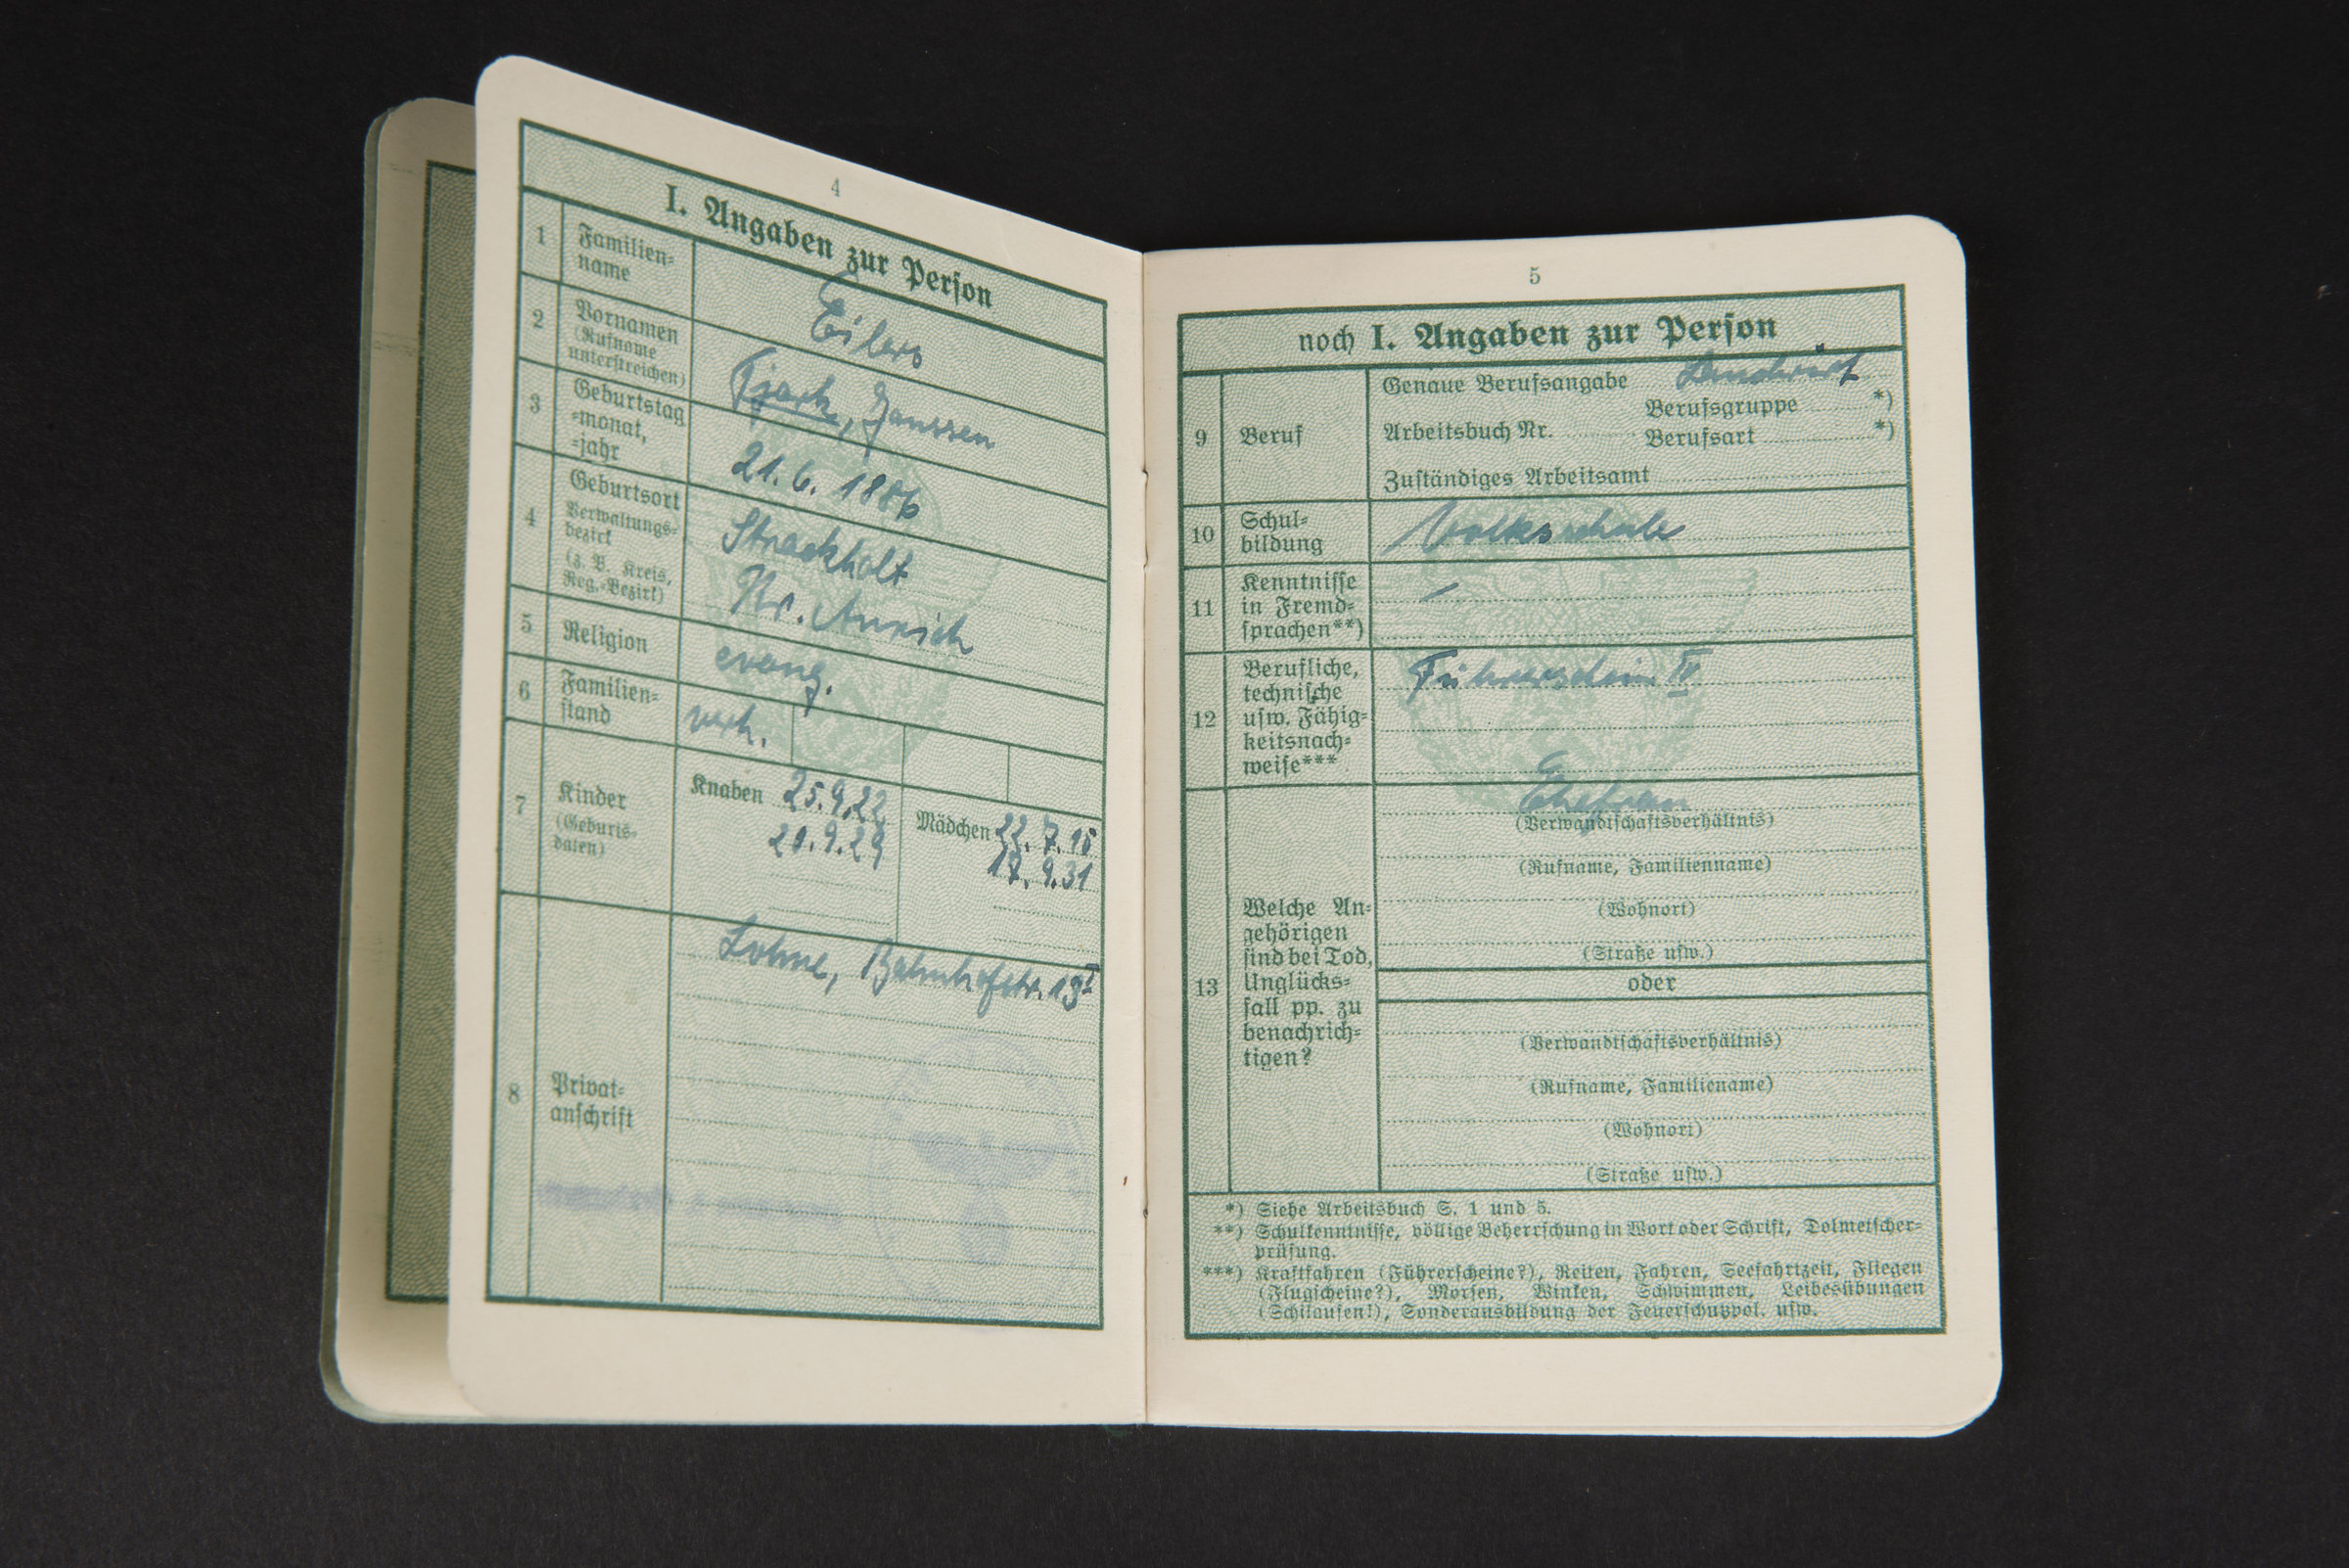 4
I. Angaben zur Person
1
Familien-
name
Eilers
2
Vornamen
(Rufname
unterstreichen)
Tjark, Janssen
3
Geburtstag
-monat,
-jahr
21. 6. 1886
4
Geburtsort
Verwaltungs-
bezirk
(z. B. Kreis,
Reg.-Bezirk)
Strackholt
Kr. Aurich
5
Religion
evang.
6
Familien-
stand
verh.
7
Kinder
(Geburts-
daten)
Knaben 25.9.22
20.9.29
Mädchen 22.7.15
17.9.31
8
Privat-
anschrift
Lohne, Bahnhofstr. 13 I
5
noch I. Angaben zur Person
9
Beruf
Genaue Berufsangabe Landwirt
Berufsgruppe *)
Arbeitsbuch Nr. Berufsart *)
Zuständiges Arbeitsamt
10
Schul-
bildung
Volksschule
11
Kenntnisse
in Fremd-
sprachen**)
–
12
Berufliche,
technische
usw. Fähig-
keitsnach-
weise***
Führerschein IV
13
Welche An-
gehörigen
sind bei Tod,
Unglücks-
fall pp. zu
benachrich-
tigen?
Ehefrau
(Verwandtschaftsverhältnis)
(Rufname, Familienname)
(Wohnort)
(Straße usw.)
oder
(Verwandtschaftsverhältnis)
(Rufname, Familiename)
(Wohnort)
(Straße usw.)
*) Siehe Arbeitsbuch S. 1 und 5.
**) Schulkenntnisse, völlige Beherrschung in Wort oder Schrift, Dolmetscher-
prüfung.
***) Kraftfahren (Führerscheine?), Reiten, Fahren, Seefahrtzeit, Fliegen
(Flugscheine?), Morsen, Winken, Schwimmen, Leibesübungen
(Schilaufen!), Sonderausbildung der Feuerschutzpol. usw.